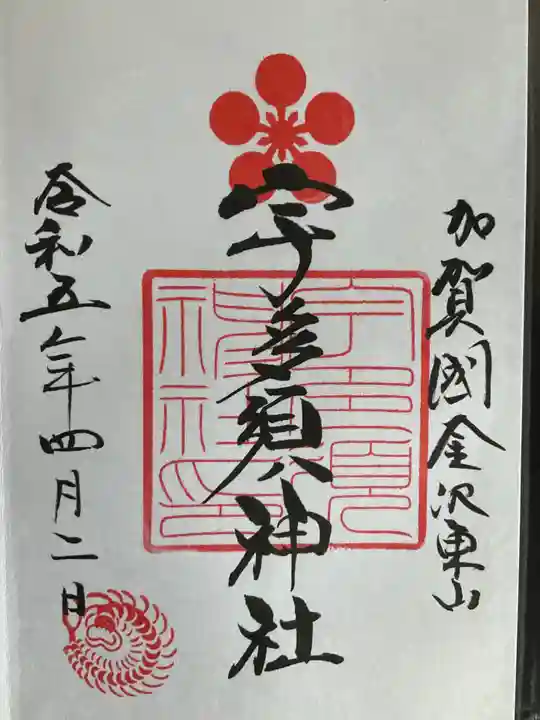 加賀國金沢東山
宇多須神社
令和五年四月二日